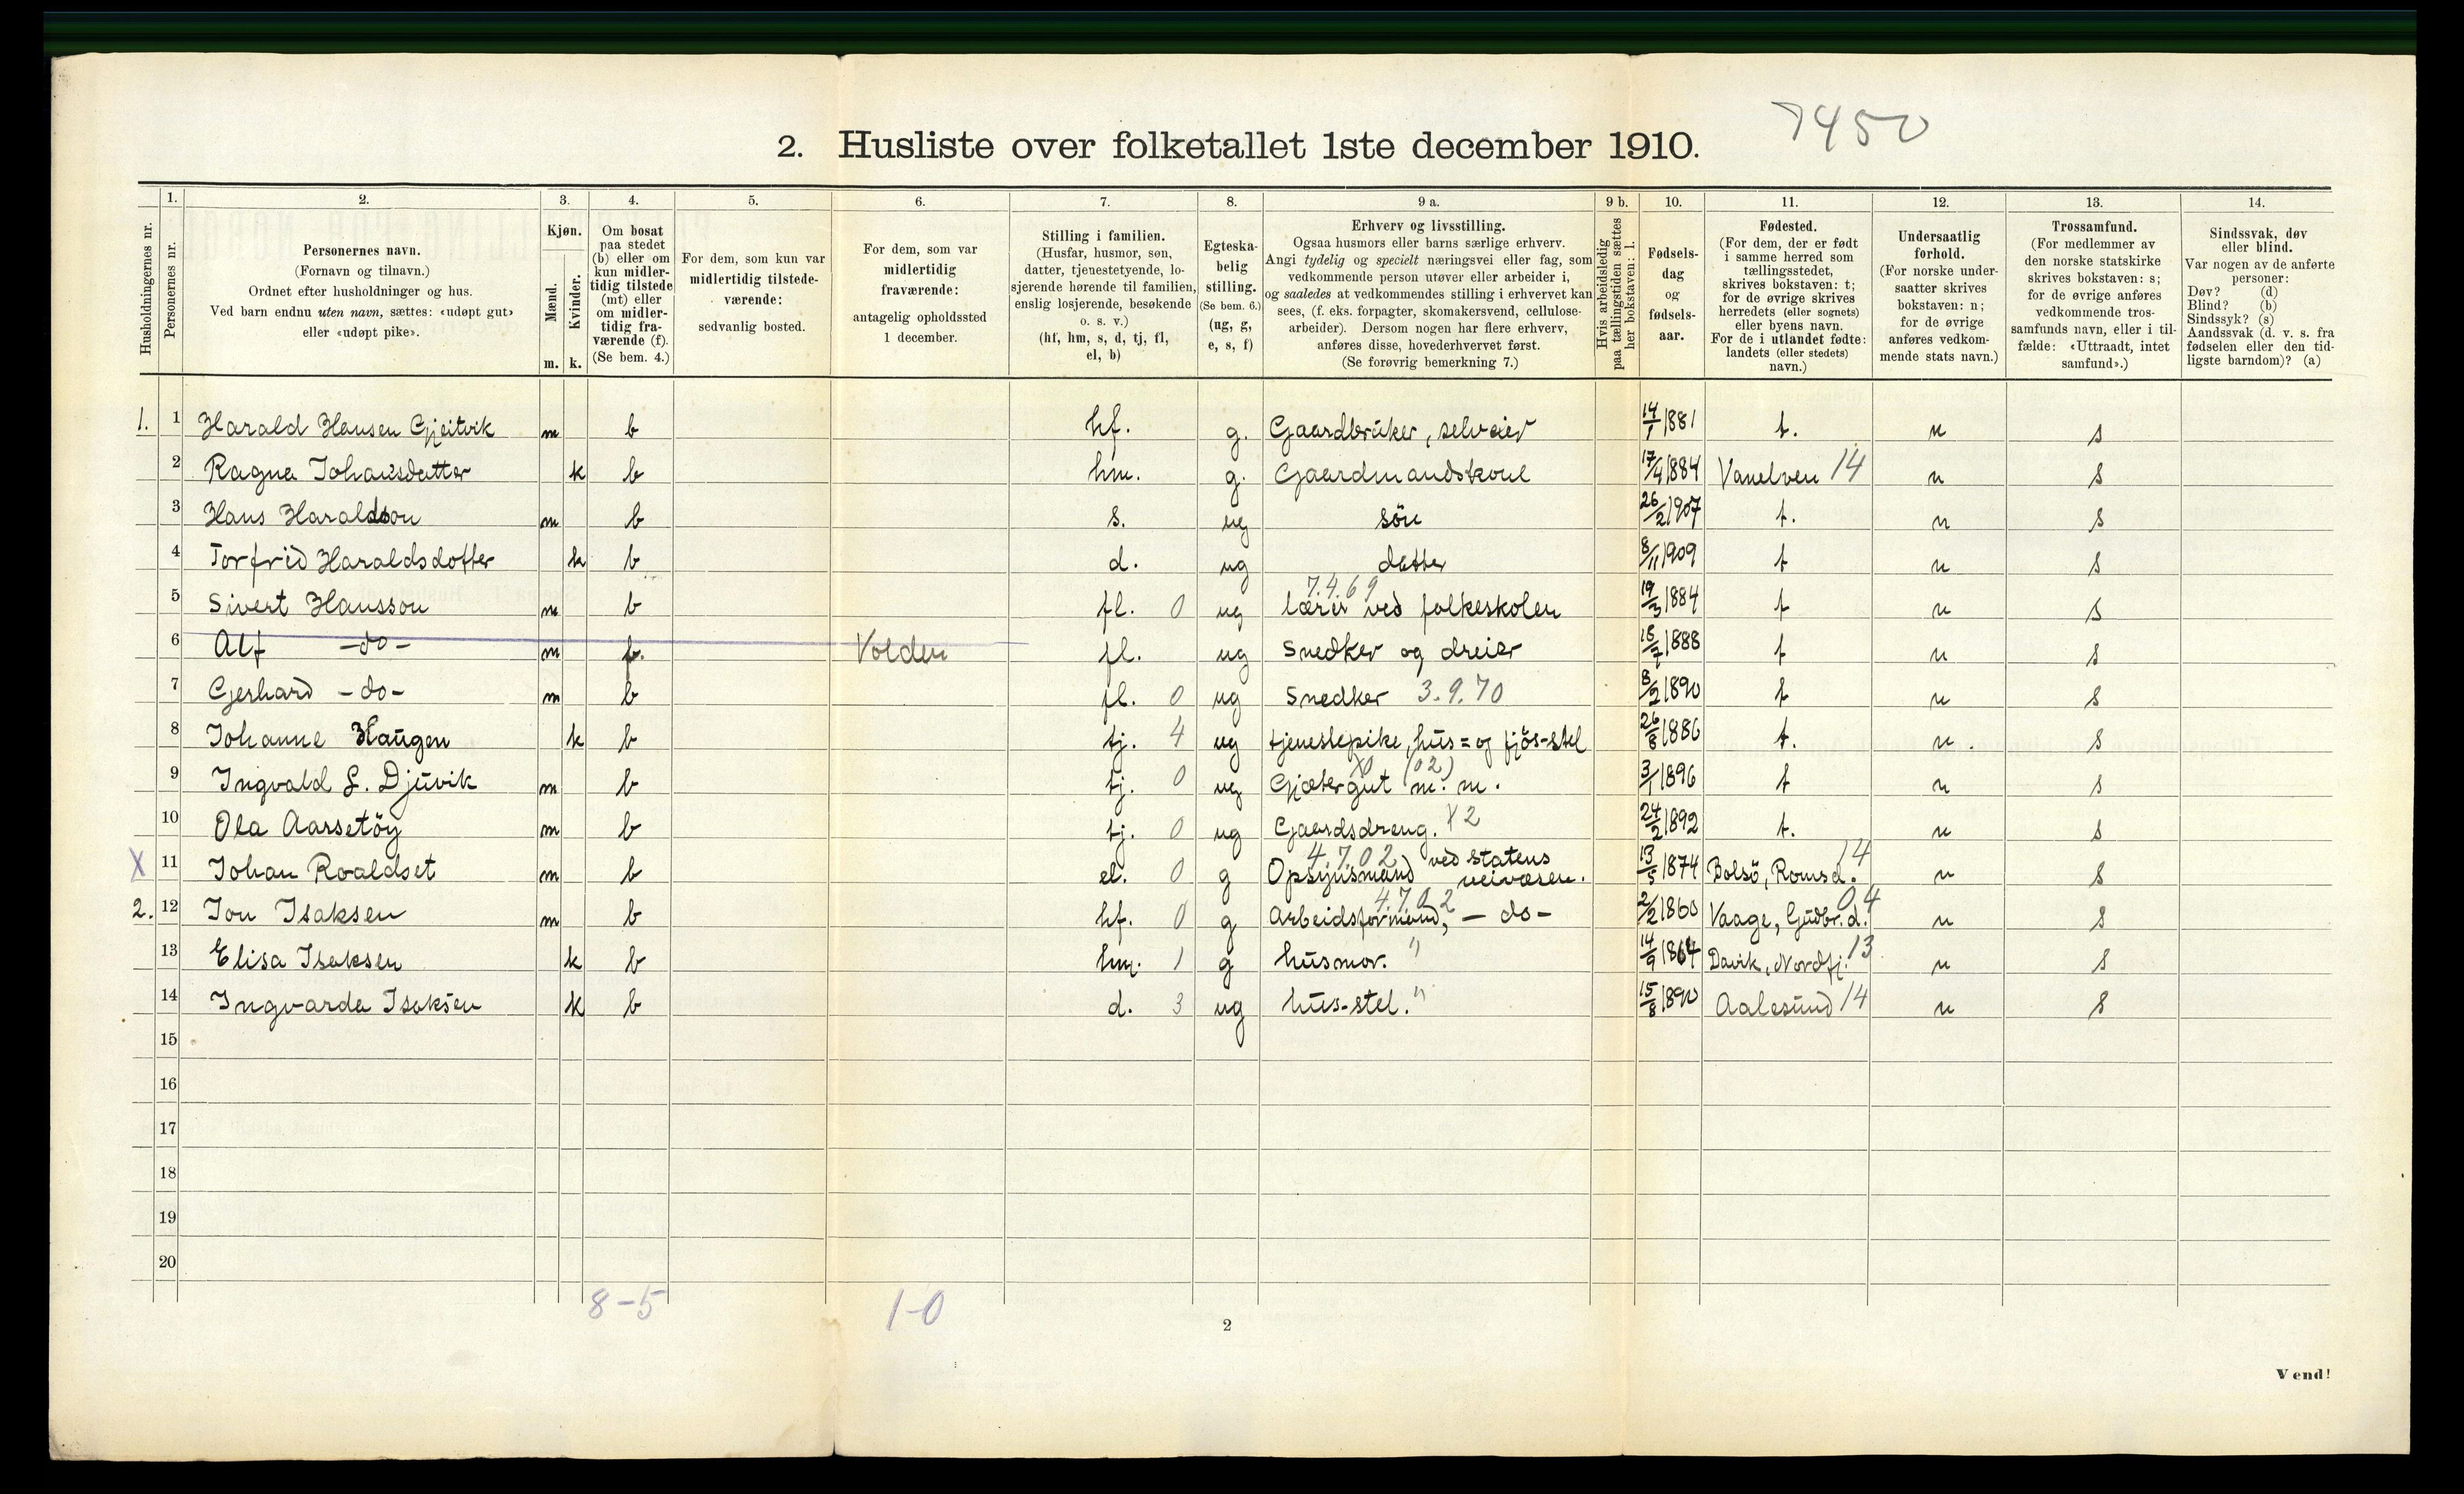 7450
2. Husliste over folketallet 1ste december 1910.
Husholdningernes nr.
1. Personernes nr.
2. Personernes navn. (Fornavn og tilnavn.) Ordnet efter husholdninger og hus. Ved barn endnu uten navn, sættes: «udøpt gut» eller «udøpt pike».
3. Kjøn. Mænd. m. Kvinder. k.
4. Om bosat paa stedet (b) eller om kun midlertidig tilstede (mt) eller om midlertidig fraværende (f). (Se bem. 4.)
5. For dem, som kun var midlertidig tilstedeværende: sedvanlig bosted.
6. For dem, som var midlertidig fraværende: antagelig opholdssted 1 december.
7. Stilling i familien. (Husfar, husmor, søn, datter, tjenestetyende, losjerende hørende til familien, enslig losjerende, besøkende o. s. v.) (hf, hm, s, d, tj, fl, el, b)
8. Egteskabelig stilling. (Se bem. 6.) (ug, g, e, s, f)
9 a. Erhverv og livsstilling. Ogsaa husmors eller barns særlige erhverv. Angi tydelig og specielt næringsvei eller fag, som vedkommende person utøver eller arbeider i, og saaledes at vedkommendes stilling i erhvervet kan sees, (f. eks. forpagter, skomakersvend, cellulosearbeider). Dersom nogen har flere erhverv, anføres disse, hovederhvervet først. (Se forøvrig bemerkning 7.)
9 b. Hvis arbeidsledig paa tællingstiden sættes her bokstaven: l.
10. Fødselsdag og fødselsaar.
11. Fødested. (For dem, der er født i samme herred som tællingsstedet, skrives bokstaven: t; for de øvrige skrives herredets (eller sognets) eller byens navn. For de i utlandet fødte: landets (eller stedets) navn.)
12. Undersaatlig forhold. (For norske undersaatter skrives bokstaven: n; for de øvrige anføres vedkommende stats navn.)
13. Trossamfund. (For medlemmer av den norske statskirke skrives bokstaven: s; for de øvrige anføres vedkommende trossamfunds navn, eller i tilfælde: «Uttraadt, intet samfund».)
14. Sindssvak, døv eller blind. Var nogen av de anførte personer: Døv? (d) Blind? (b) Sindssyk? (s) Aandssvak (d. v. s. fra fødselen eller den tidligste barndom)? (a)
1. 1 Harald Hansen Gjeitvik m b hf. g. Gaardbruker, selveier 14/1 1881 t. n s
2 Ragna Johansdatter k b hm. g. Gaardmandskone 17/4 1884 Vanelven 14 n s
3 Hans Haraldson m b s. ug sön 26/2 1907 t. n s
4 Torfrid Haraldsdotter k b d. ug datter 8/11 1909 t n s
5 Sivert Hansson m b fl. 0 ug lærer ved folkeskolen 7.4.69 19/3 1884 t n s
6 Alf -do- m f. Volden fl. ug Snedker og dreier 15/7 1888 t n s
7 Gerhard -do- m b fl. 0 ug Snedker 3.9.70 8/2 1890 t n s
8 Johanne Haugen k b tj. 4 ug tjenestepike, hus= og fjös-stel 26/8 1886 t. n. s
9 Ingvald L. Djuvik m b tj. 0 ug Gjætergut m. m. X0 (02) 3/1 1896 t n s
10 Ola Aarsetöy m b tj. 0 ug Gaardsdreng. X2 24/2 1892 t. n s
X 11 Johan Roaldset m b el. 0 g Opsynsmand ved statens veivæsen. 4.7.02 13/5 1874 Bolsö, Romsd. 14 n s
2. 12 Jon Isaksen m b hf. 0 g Arbeidsformand, -do- 4.7.02 2/2 1860 Vaage, Gudbr.d. 04 n s
13 Elisa Isaksen k b hm. 1 g husmor. " 14/9 1864 Davik, Nordfj. 13 n s
14 Ingvarda Isaksen k b d. 3 ug hus-stel. " 15/8 1890 Aalesund 14 n s
15
16
17
18
19
20
8-5 1-0
2
Vend!